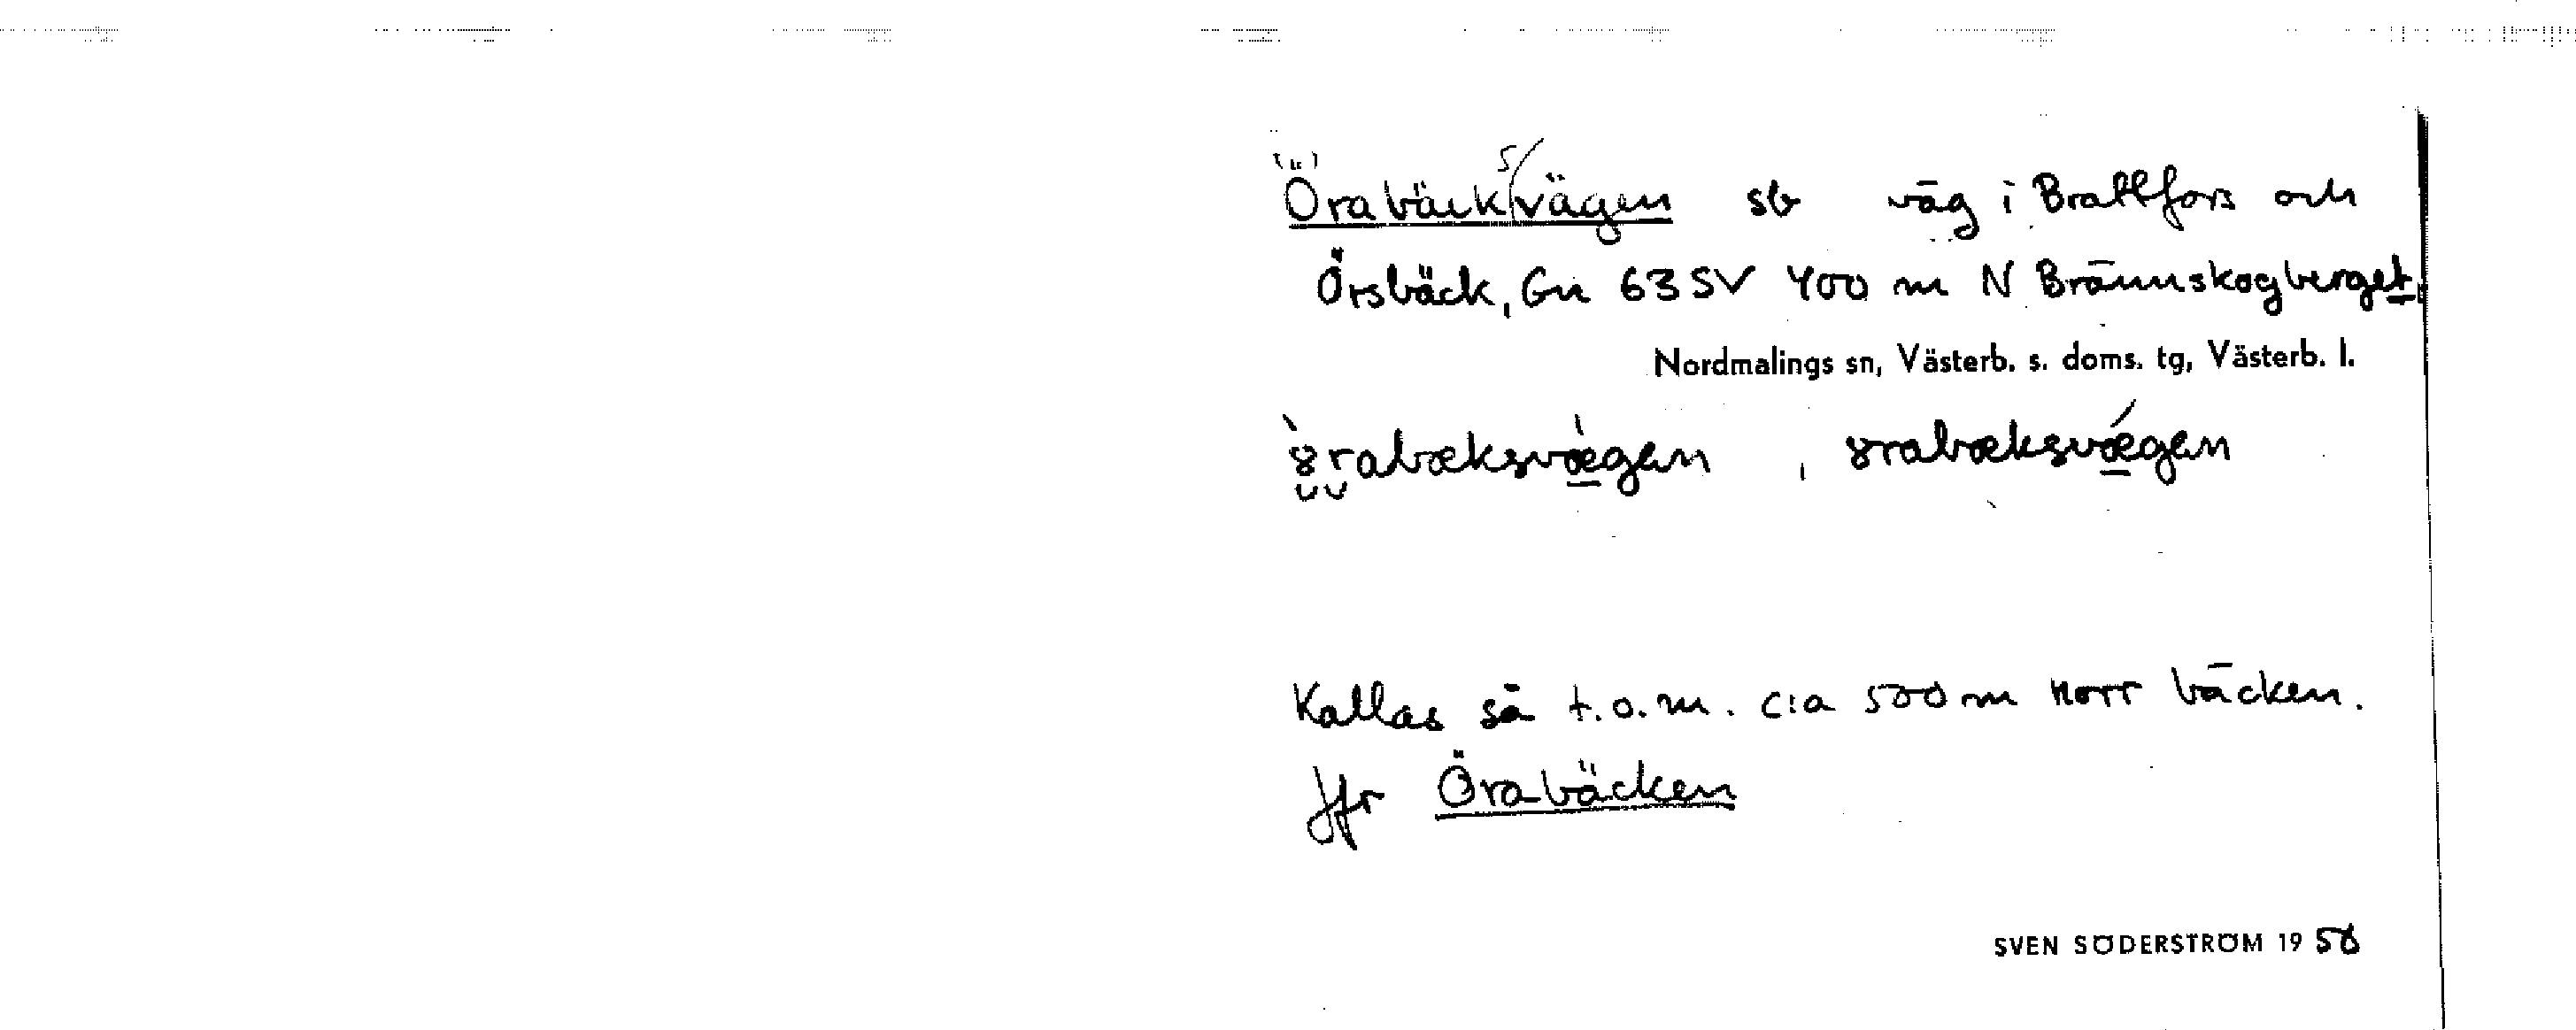 Örabäcksvägen sb väg i Brattfors och
Örsbäck, Gn 63 SV 400 m N Brännskogberget
Nordmalings sn, Västerb. s. doms. tg, Västerb. l.
Kallas så t.o.m. c:a 500 m norr bäcken.
Jfr Örabäcken
SVEN SÖDERSTRÖM 19